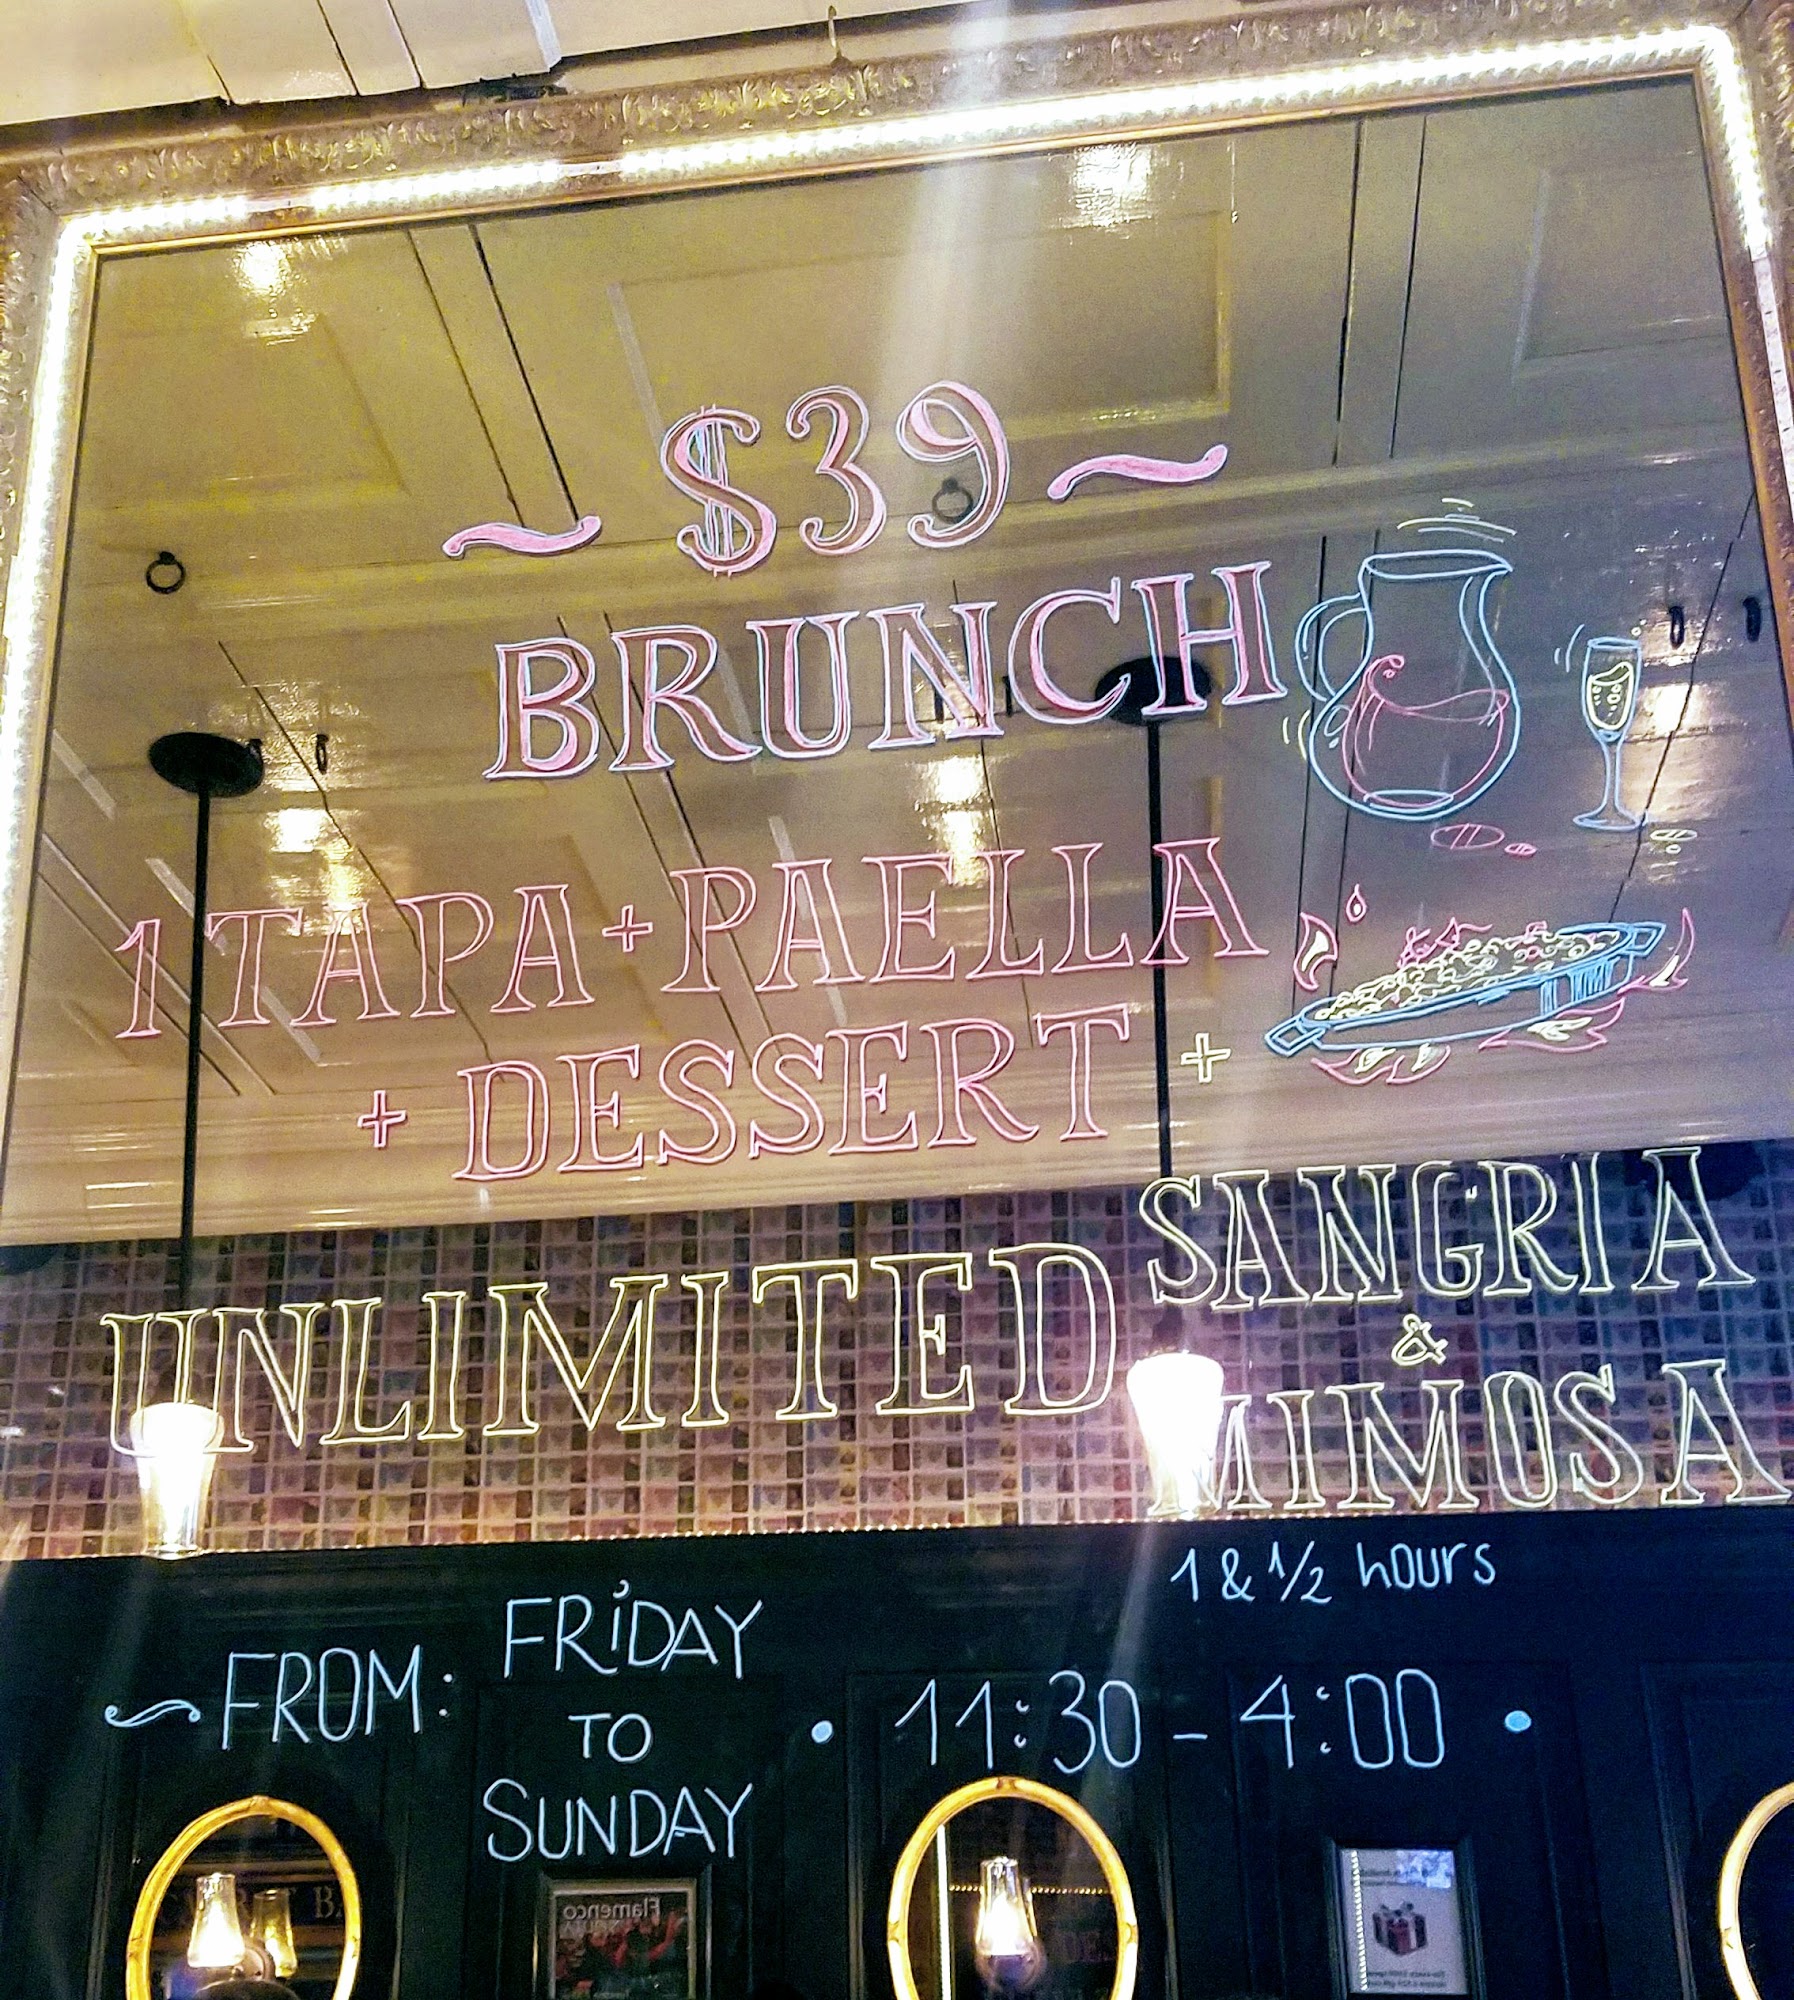 ~ $39 ~
BRUNCH
1 TAPA + PAELLA
+ DESSERT +
UNLIMITED SANGRIA
&
MIMOSA
1 & 1/2 hours
~ FROM: FRIDAY
TO
SUNDAY
• 11:30 - 4:00 •
Flamenco